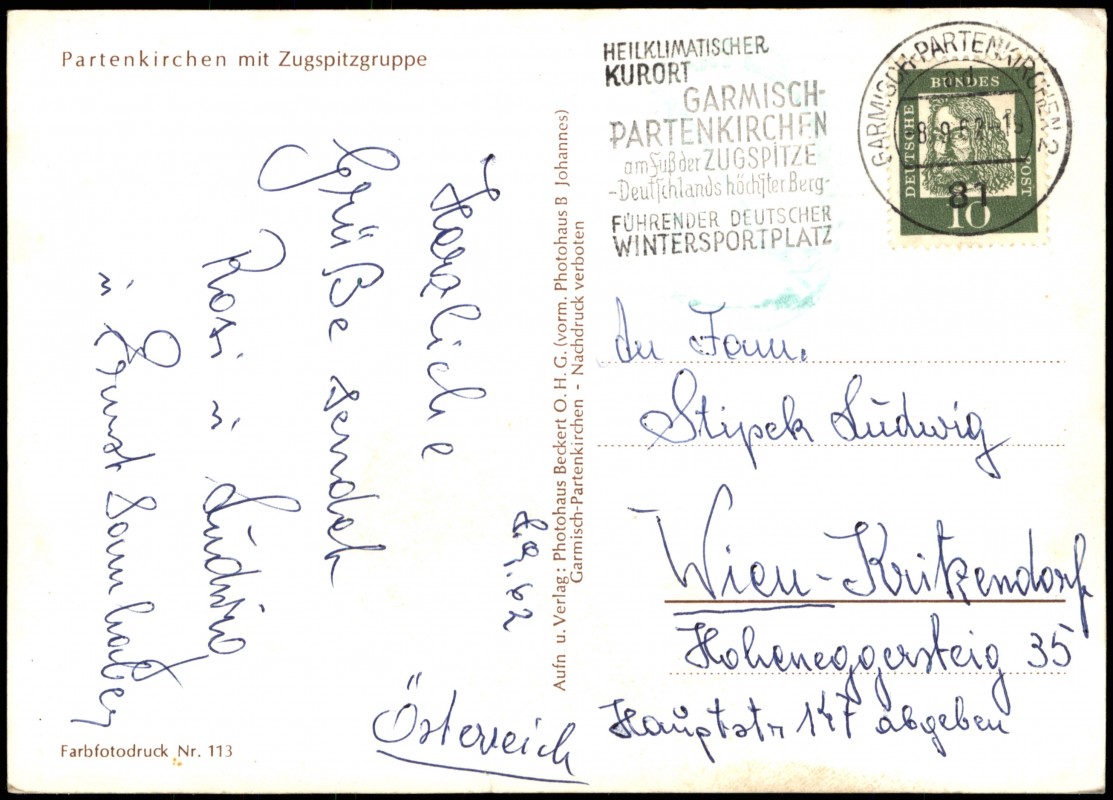 Partenkirchen mit Zugspitzgruppe
HEILKLIMATISCHER
KURORT
GARMISCH-
PARTENKIRCHEN
am Fuß der ZUGSPITZE
-Deutschlands höchster Berg-
FÜHRENDER DEUTSCHER
WINTERSPORTPLATZ
GARMISCH-PARTENKIRCHEN 2
8.9.62-15
81
DEUTSCHE BUNDES POST
10
Herzliche
Grüße sendet
Rosi u. Ludwig
u. Ernst
8.9.62
Aufn u. Verlag: Photohaus Beckert O. H. G. (vorm. Photohaus B Johannes)
Garmisch-Partenkirchen - Nachdruck verboten
An Fam.
Stipek Ludwig
Wien-Kritzendorf
Hoheneggersteig 35
Hauptstr 147 abgeben
Österreich
Farbfotodruck Nr. 113